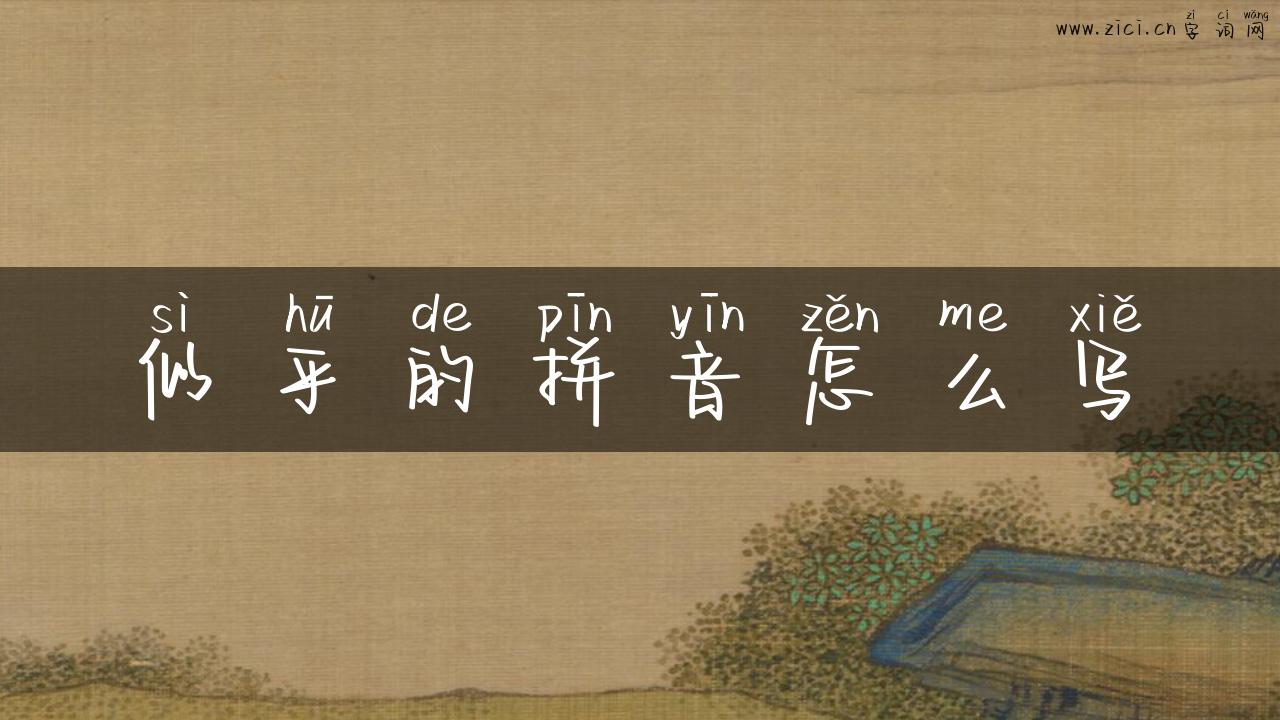 zì cí wǎng
www.zici.cn字词网
sì hū de pīn yīn zěn me xiě
似乎的拼音怎么写